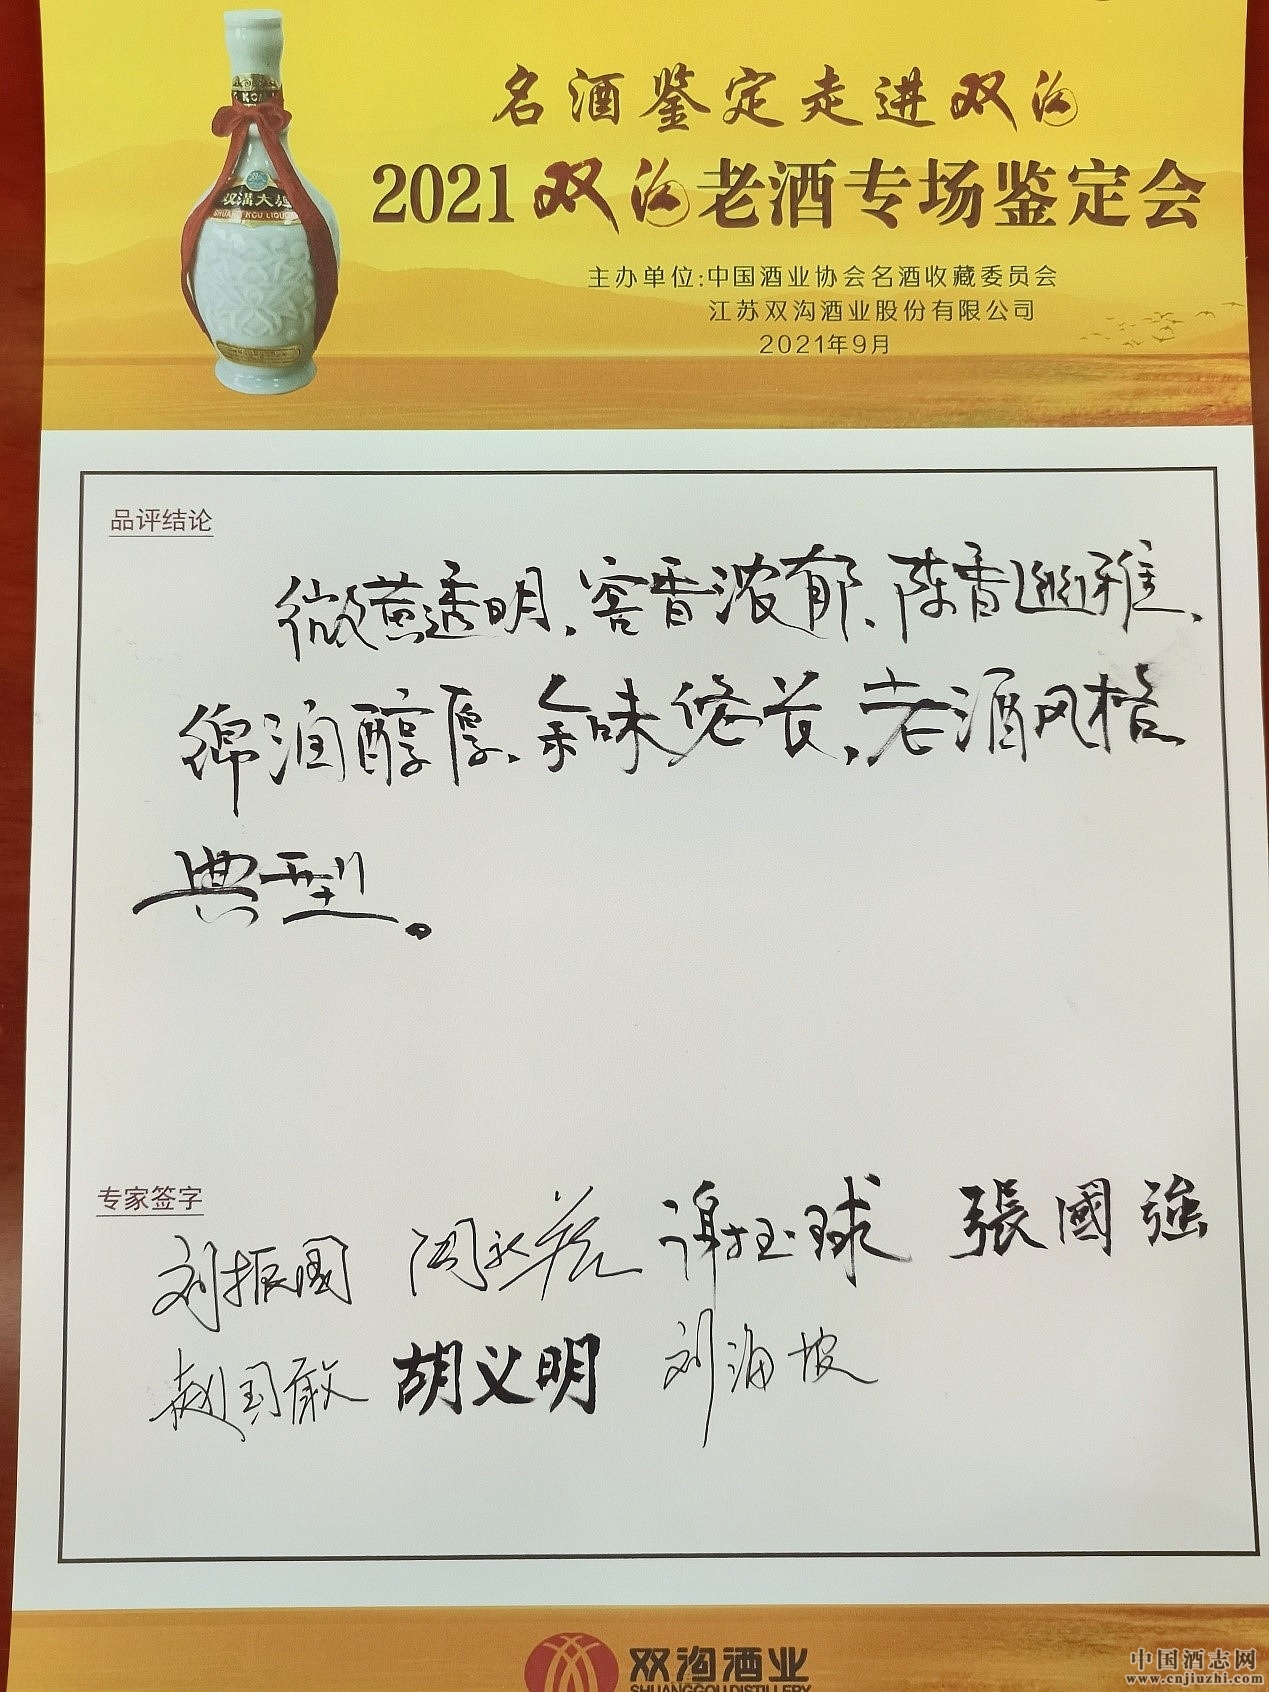 名酒鉴定走进双沟
2021双沟老酒专场鉴定会
主办单位:中国酒业协会名酒收藏委员会
江苏双沟酒业股份有限公司
2021年9月
双溝大曲
SHUANG KOU LIQUOR
品评结论
微黄透明、窖香浓郁、陈香幽雅、
绵润醇厚、余味悠长、老酒风格
典型。
专家签字
刘振国 谢玉球 張國強
赵国敢 胡义明 刘海坡
双沟酒业
SHUANGGOU DISTILLERY
中国酒志网
www.cnjiuzhi.com